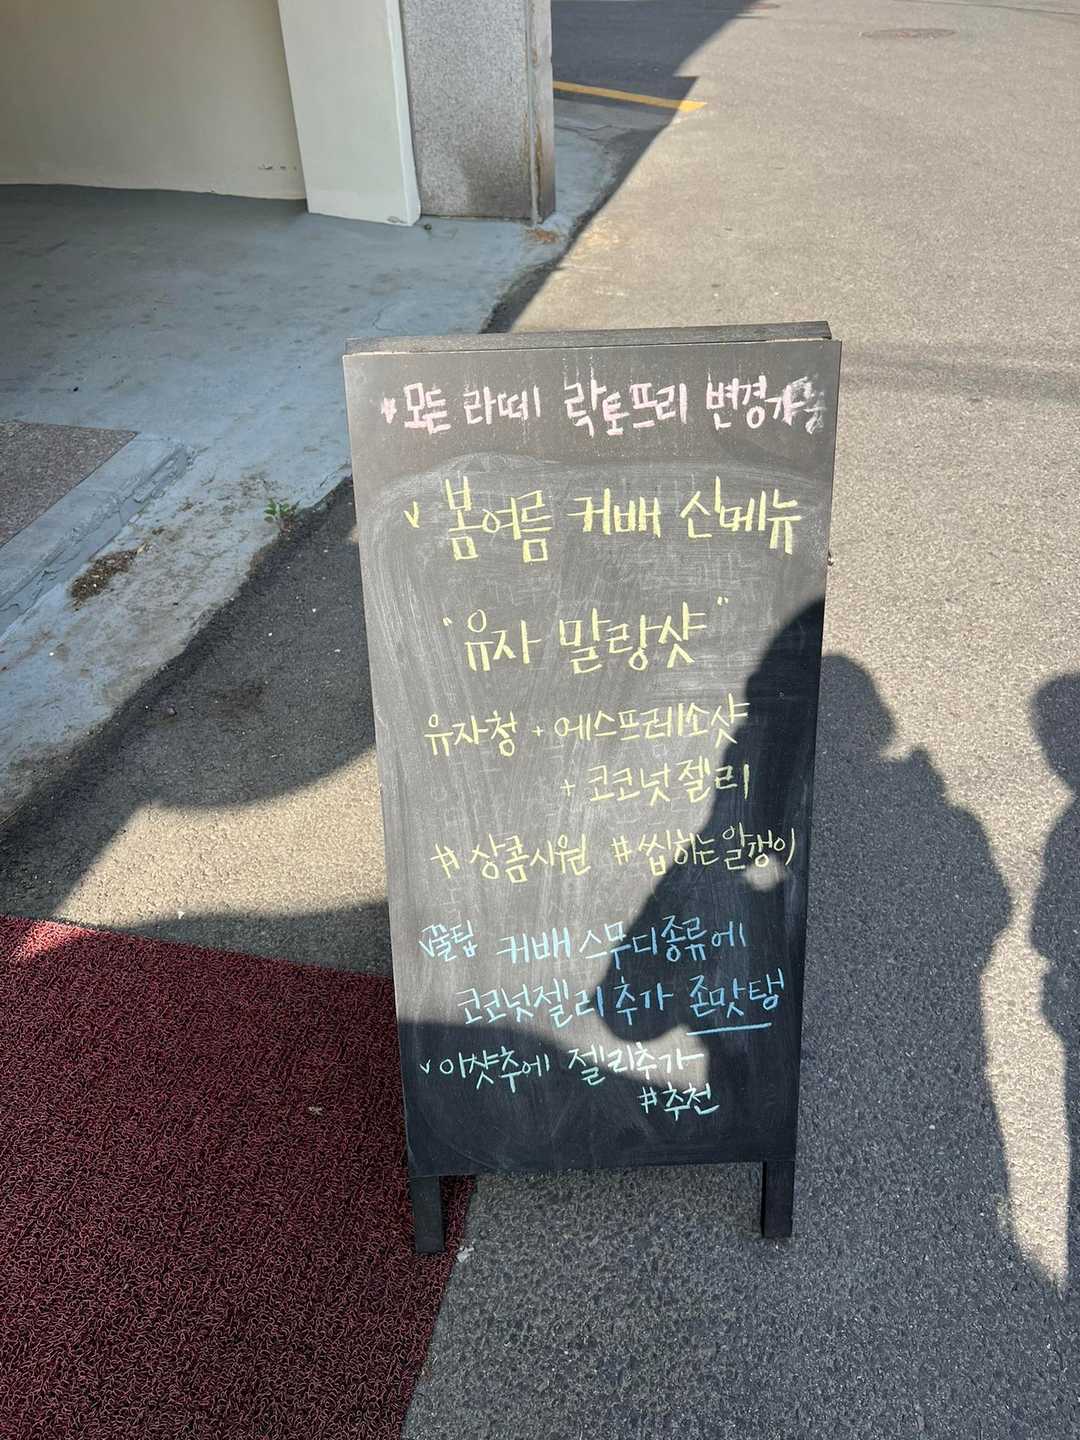 ♥모든 라떼 락토프리 변경가능
v 봄여름 커배 신메뉴
"유자 말랑샷"
유자청 + 에스프레소샷
+ 코코넛젤리
#상콤시원 #씹하는알갱이
v꿀팁 커배스무디종류에
코코넛젤리추가 존맛탱
v 이샷추에 젤리추가
#추천